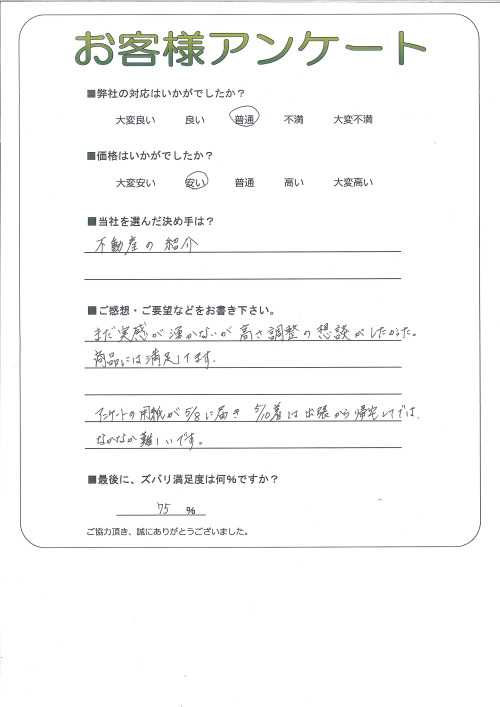 お客様アンケート
■弊社の対応はいかがでしたか？
大変良い 良い 普通 不満 大変不満
■価格はいかがでしたか？
大変安い 安い 普通 高い 大変高い
■当社を選んだ決め手は？
不動産の紹介
■ご感想・ご要望などをお書き下さい。
まだ実感が湧かないが高さ調整の想談がしたかった。
商品には満足してます.
アンケートの用紙が5/8に届き 5/10着は出張から帰宅しては、
なかなか難しいです。
■最後に、ズバリ満足度は何%ですか？
75 %
ご協力頂き、誠にありがとうございました。